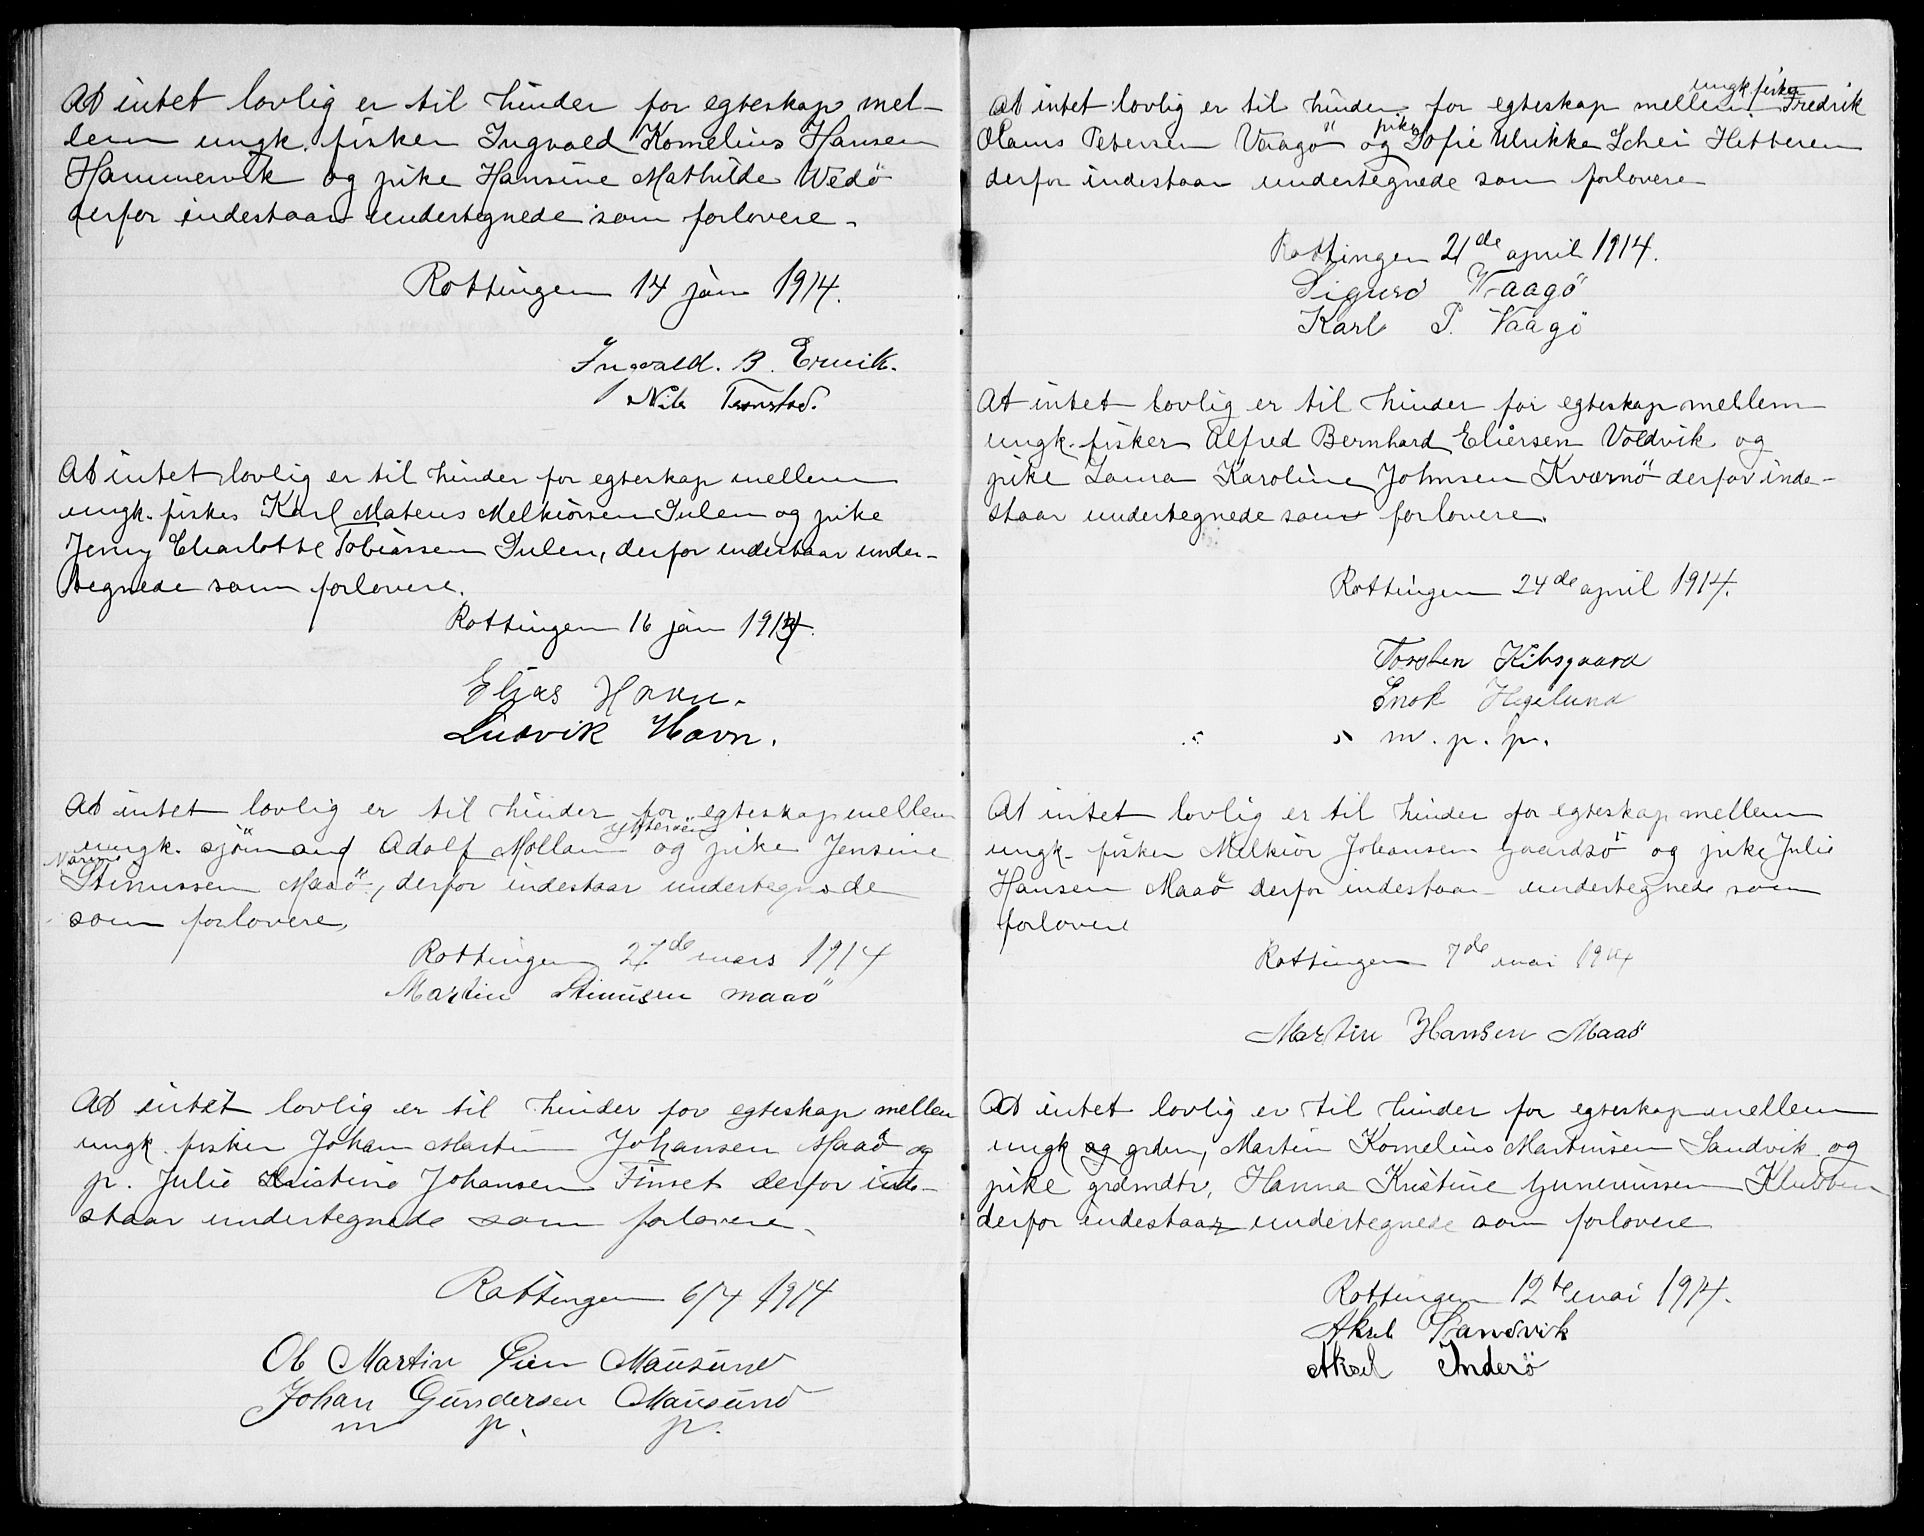 At intet lovlig er til hinder for egteskap mel-
lem ungk. fisker Ingvald Kornelius Hansen
Hammervik og pike Hansine Mathilde Wedö
derfor indestaar undertegnede som forlovere.
Rottingen 14 jan 1914.
Ingvald. B. Ervik.
Nils
At intet lovlig er til hinder for egteskap mellem
ungk. fisker Karl Mateus Melkiorsen Sulen og pike
Jenny Charlotte Tobiassen Sulen, derfor indestaar under-
tegnede som forlovere.
Rottingen 16 jan 1914.
Elias Havn.
Ludvik Havn.
At intet lovlig er til hinder for egteskap mellem
ungk. sjömand Adolf Mollan Ytteröens og pike Jensine
Marine
Stinussen Maaö, derfor indestaar undertegnede
som forlovere
Rottingen 27de mars 1914
Martin Stinusen maaö
At intet lovlig er til hinder for egteskap mellem
ungk. fisker Johan Martin Johansen Maaö og
p. Julie Kristine Johansen Finset derfor inde-
staar undertegnede som forlovere.
Rottingen 6/4 1914
Ol Martin Lien Mausund
Johan Gundersen Mausund
m p. p.
ungk. fisker
At intet lovlig er til hinder for egteskap mellem Fredrik
Olaus Petersen Vaagö og pike Sofie Ulrikke Schei Hitteren
derfor indestaar undertegnede som forlovere
Rottingen 21de april 1914.
Sigurd Vaagö
Karl P. Vaagö
At intet lovlig er til hinder for egteskap mellem
ungk. fisker Alfred Bernhard Eliersen Voldvik og
pike Laura Karoline Johnsen Kværnö derfor inde-
staar undertegnede som forlovere.
Rottingen 24de april 1914.
Torsten Kibsgaard
Enok Hegelund
m. p. p.
At intet lovlig er til hinder for egteskap mellem
ungk. fisker Melkior Johansen Gaardsö og pike Julie
Hansen Maaö derfor indestaar undertegnede som
forlovere
Rottingen 7de mai 1914
Martin Hansen Maaö
At intet lovlig er til hinder for egteskap mellem
ungk og grdm, Martin Kornelius Martinsen Sandvik og
pike grdmdtr, Hanna Kristine Klubben
derfor indestaar undertegnede som forlovere
Rottingen 12te mai 1914.
Aksel Sandvik
Aksel Inderö